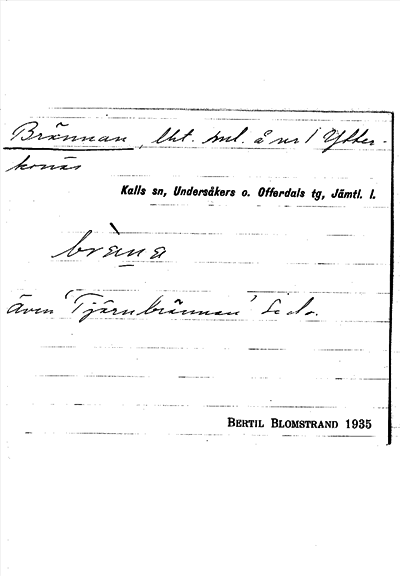 Brännan, lht. bml. å nr 1 Ytter-
konäs
Kalls sn, Undersåkers o. Offerdals tg, Jämtl. l.
bràna
även 'Tjärnbrännan' Se d.o.
BERTIL BLOMSTRAND 1935